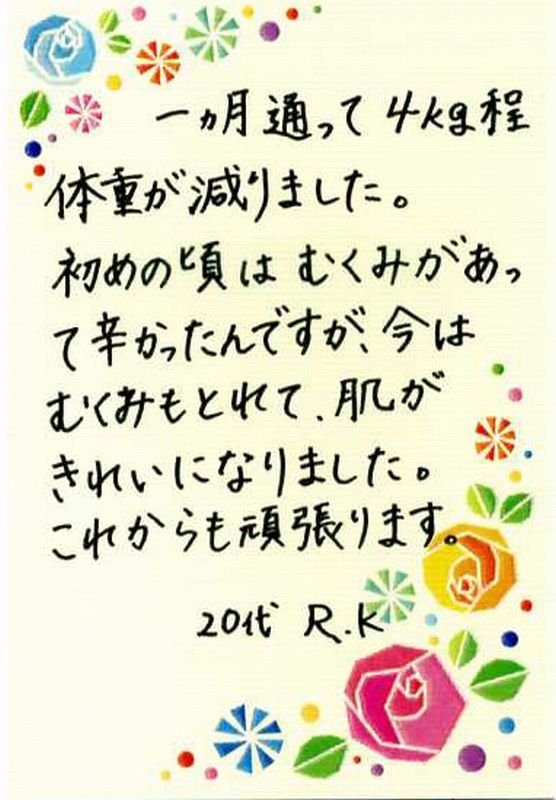 一ヵ月通って4kg程
体重が減りました。
初めの頃はむくみがあっ
て辛かったんですが、今は
むくみもとれて、肌が
きれいになりました。
これからも頑張ります。
20代 R.K